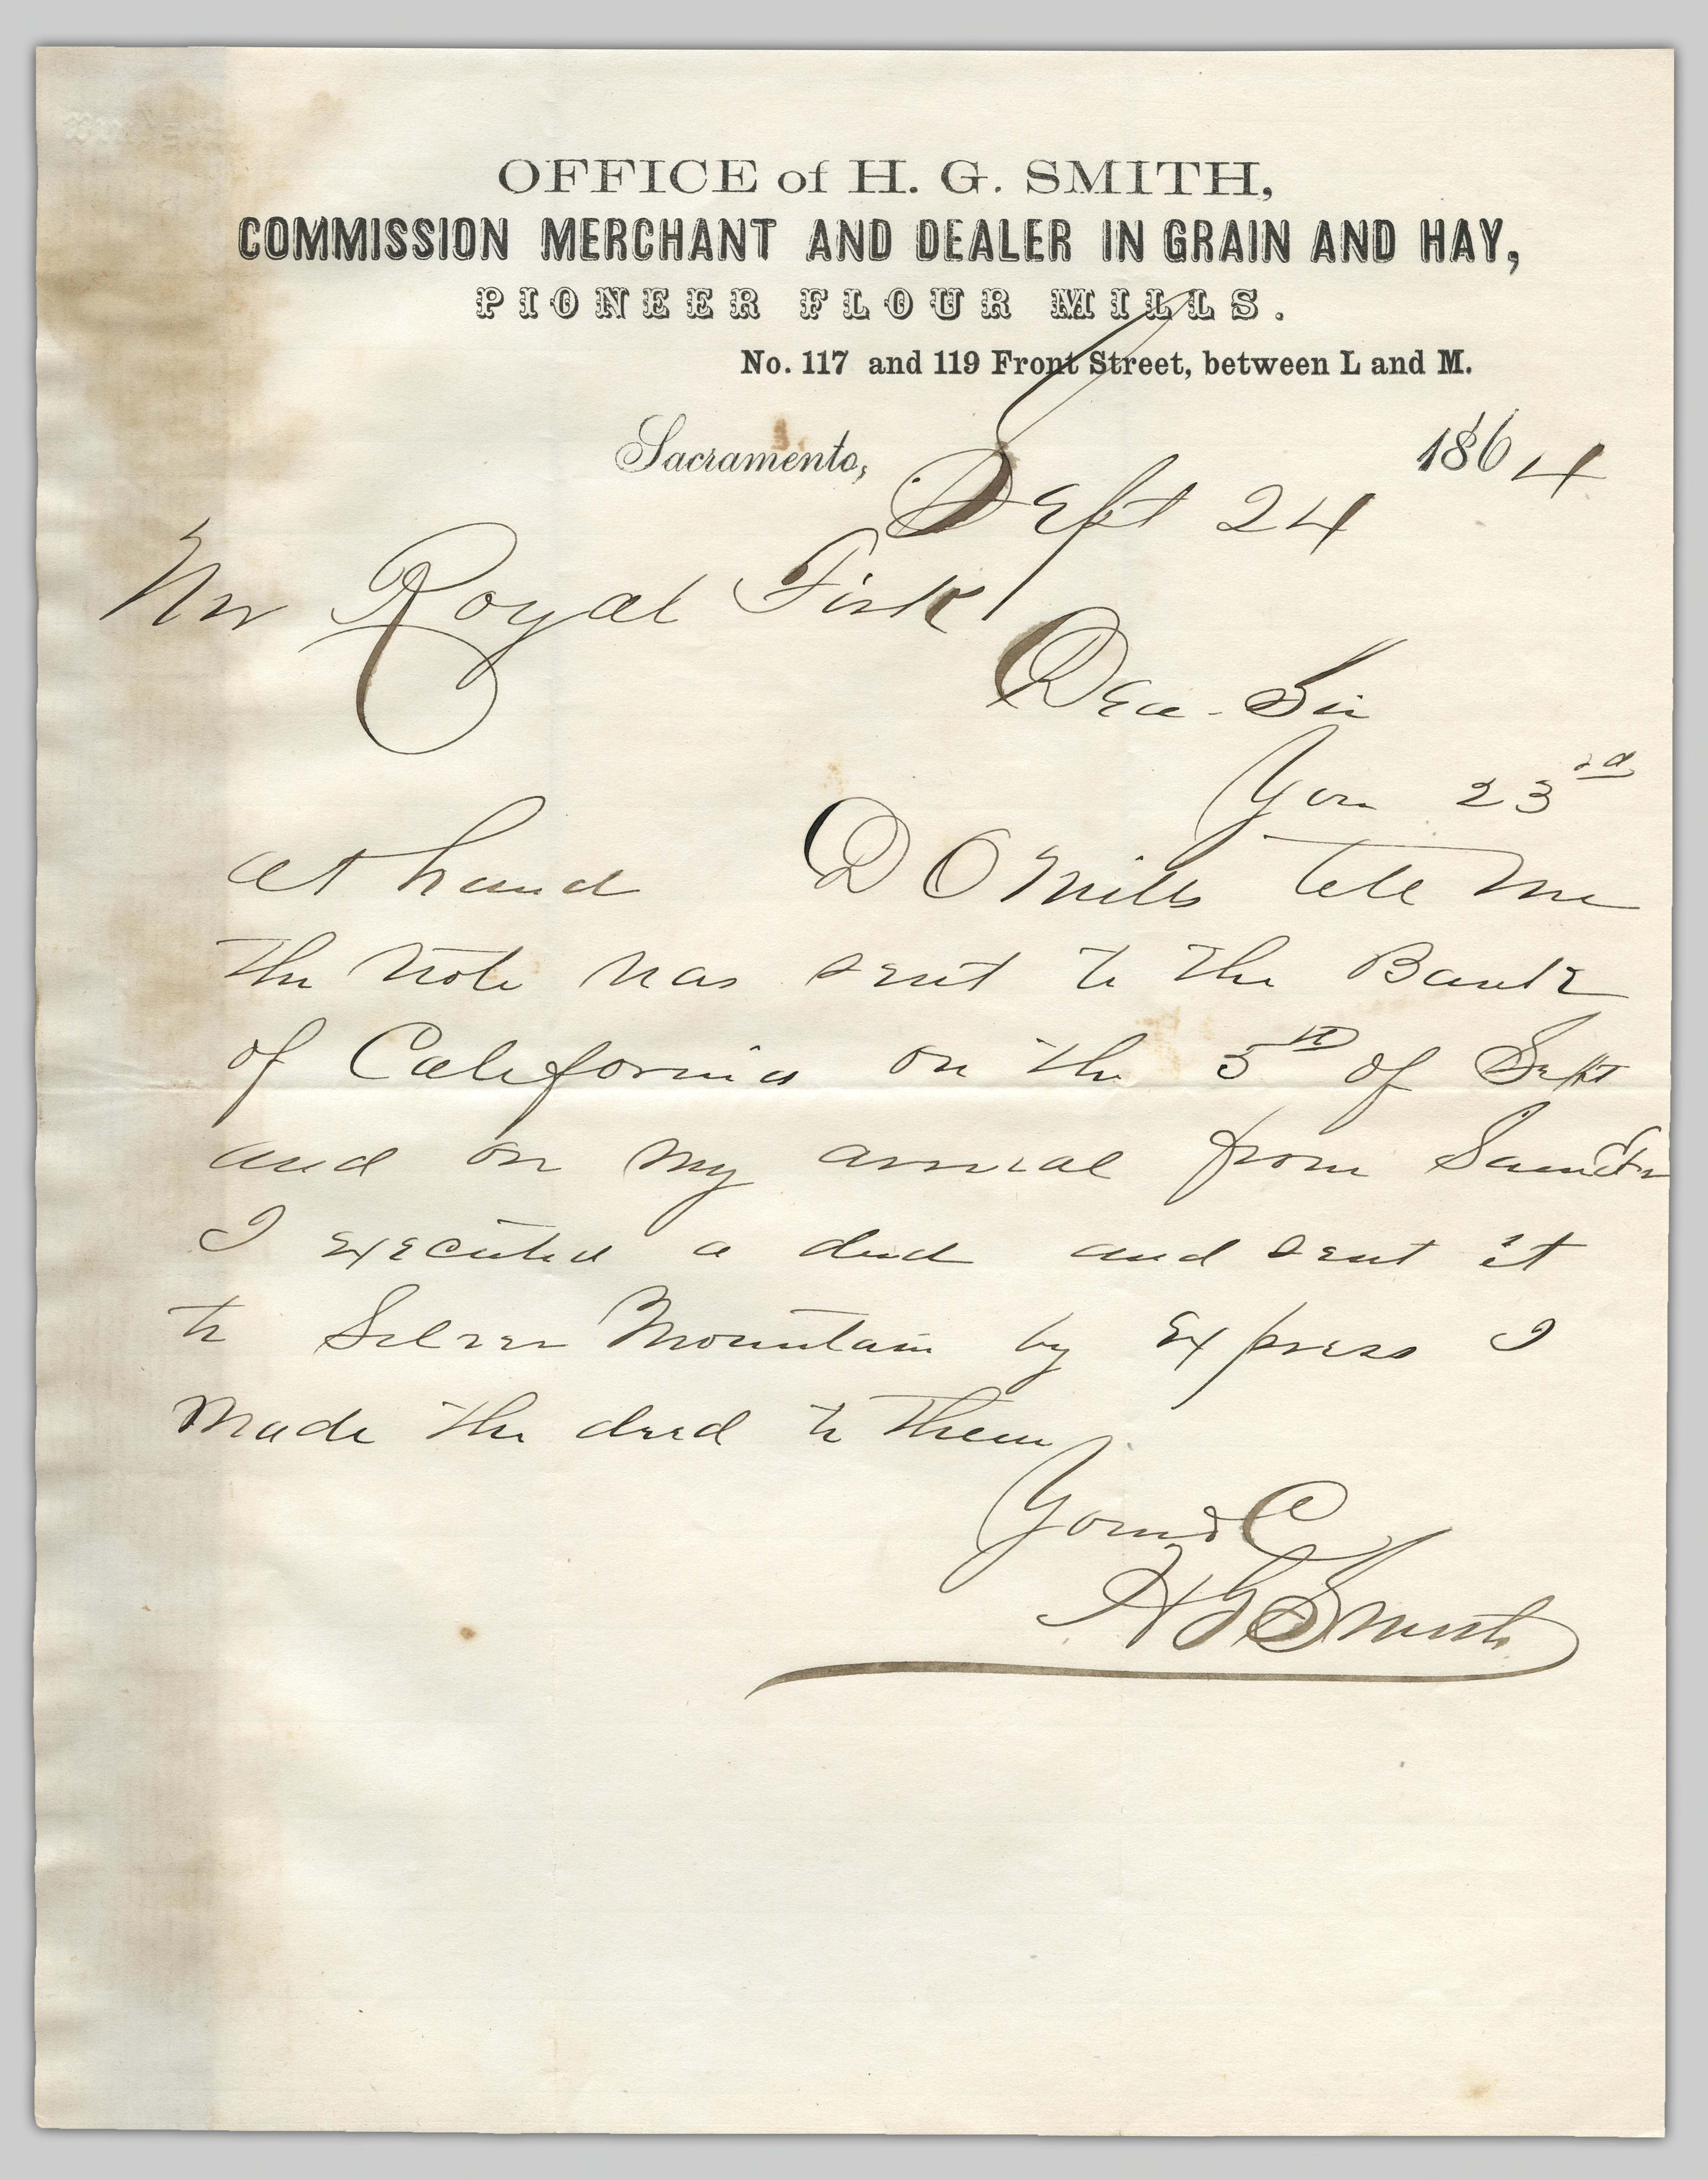 OFFICE of H. G. SMITH,
COMMISSION MERCHANT AND DEALER IN GRAIN AND HAY,
PIONEER FLOUR MILLS.
No. 117 and 119 Front Street, between L and M.
Sacramento, Sept 24 1864
Mr Royal Fisk
Dear Sir
Your 23rd
at hand D O Mills tell me
the note was sent to the Bank
of California on the 5th of Sept
and on my arrival from
I executed a deed and sent it
to Silver Mountain by Express I
made the deed to them
Yours &C
H G Smith